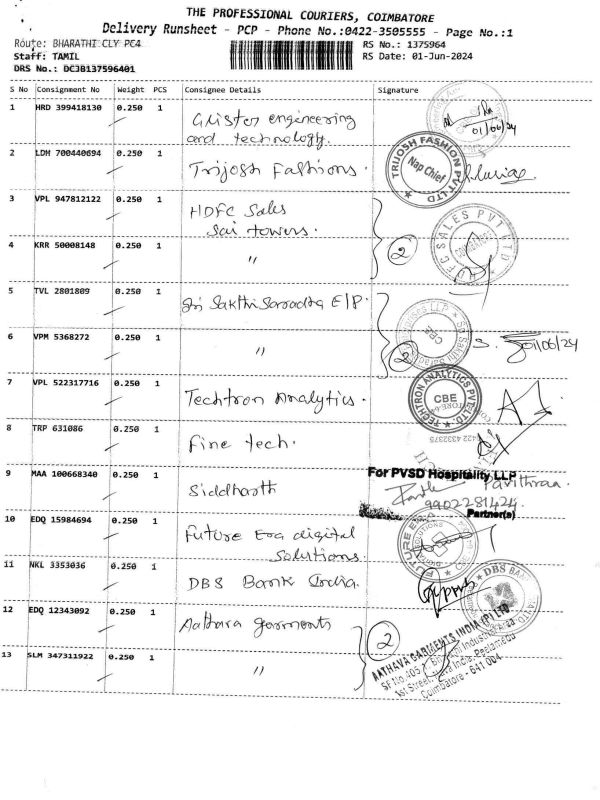 THE PROFESSIONAL COURIERS, COIMBATORE
Delivery Runsheet - PCP - Phone No.:0422-3505555 - Page No.:1
Route: BHARATHI CLY PC4 RS No.: 1375964
Staff: TAMIL RS Date: 01-Jun-2024
DRS No.: DCJB137596401
S No Consignment No Weight PCS Consignee Details Signature
1 HRD 399418130 0.250 1 Glister engineering
and technology. 01/06/24
2 LDH 700440694 0.250 1 Trijosh Fashions. TRIJOSH FASHION PVT LTD Nap Chief
3 VPL 947812122 0.250 1 HDFC Sales
Sai towers. 2 SALES PVT LTD
4 KRR 50008148 0.250 1 "
5 TVL 2801809 0.250 1 Sri Sakthi Saradha E/P.
6 VPM 5368272 0.250 1 " 2 CBE S. 01/06/24
7 VPL 522317716 0.250 1 Techtron Analytics. TECHTRON ANALYTICS PVT LTD CBE
8 TRP 631086 0.250 1 Fine tech. 0422 4332375
9 MAA 100668340 0.250 1 Siddharth For PVSD Hospitality LLP
Pavithraa
9902281424
Partner(s)
10 EDQ 15984694 0.250 1 Future Era digital
Solutions. FUTURE ERA
11 NKL 3353036 0.250 1 DBS Bank India. DBS BANK
12 EDQ 12343092 0.250 1 Aathava garments 2
13 SLM 347311922 0.250 1 "
AATHAVA GARMENTS INDIA (P) LTD
SF No.405
1st Street, India, Peelamedu
Coimbatore - 641 004